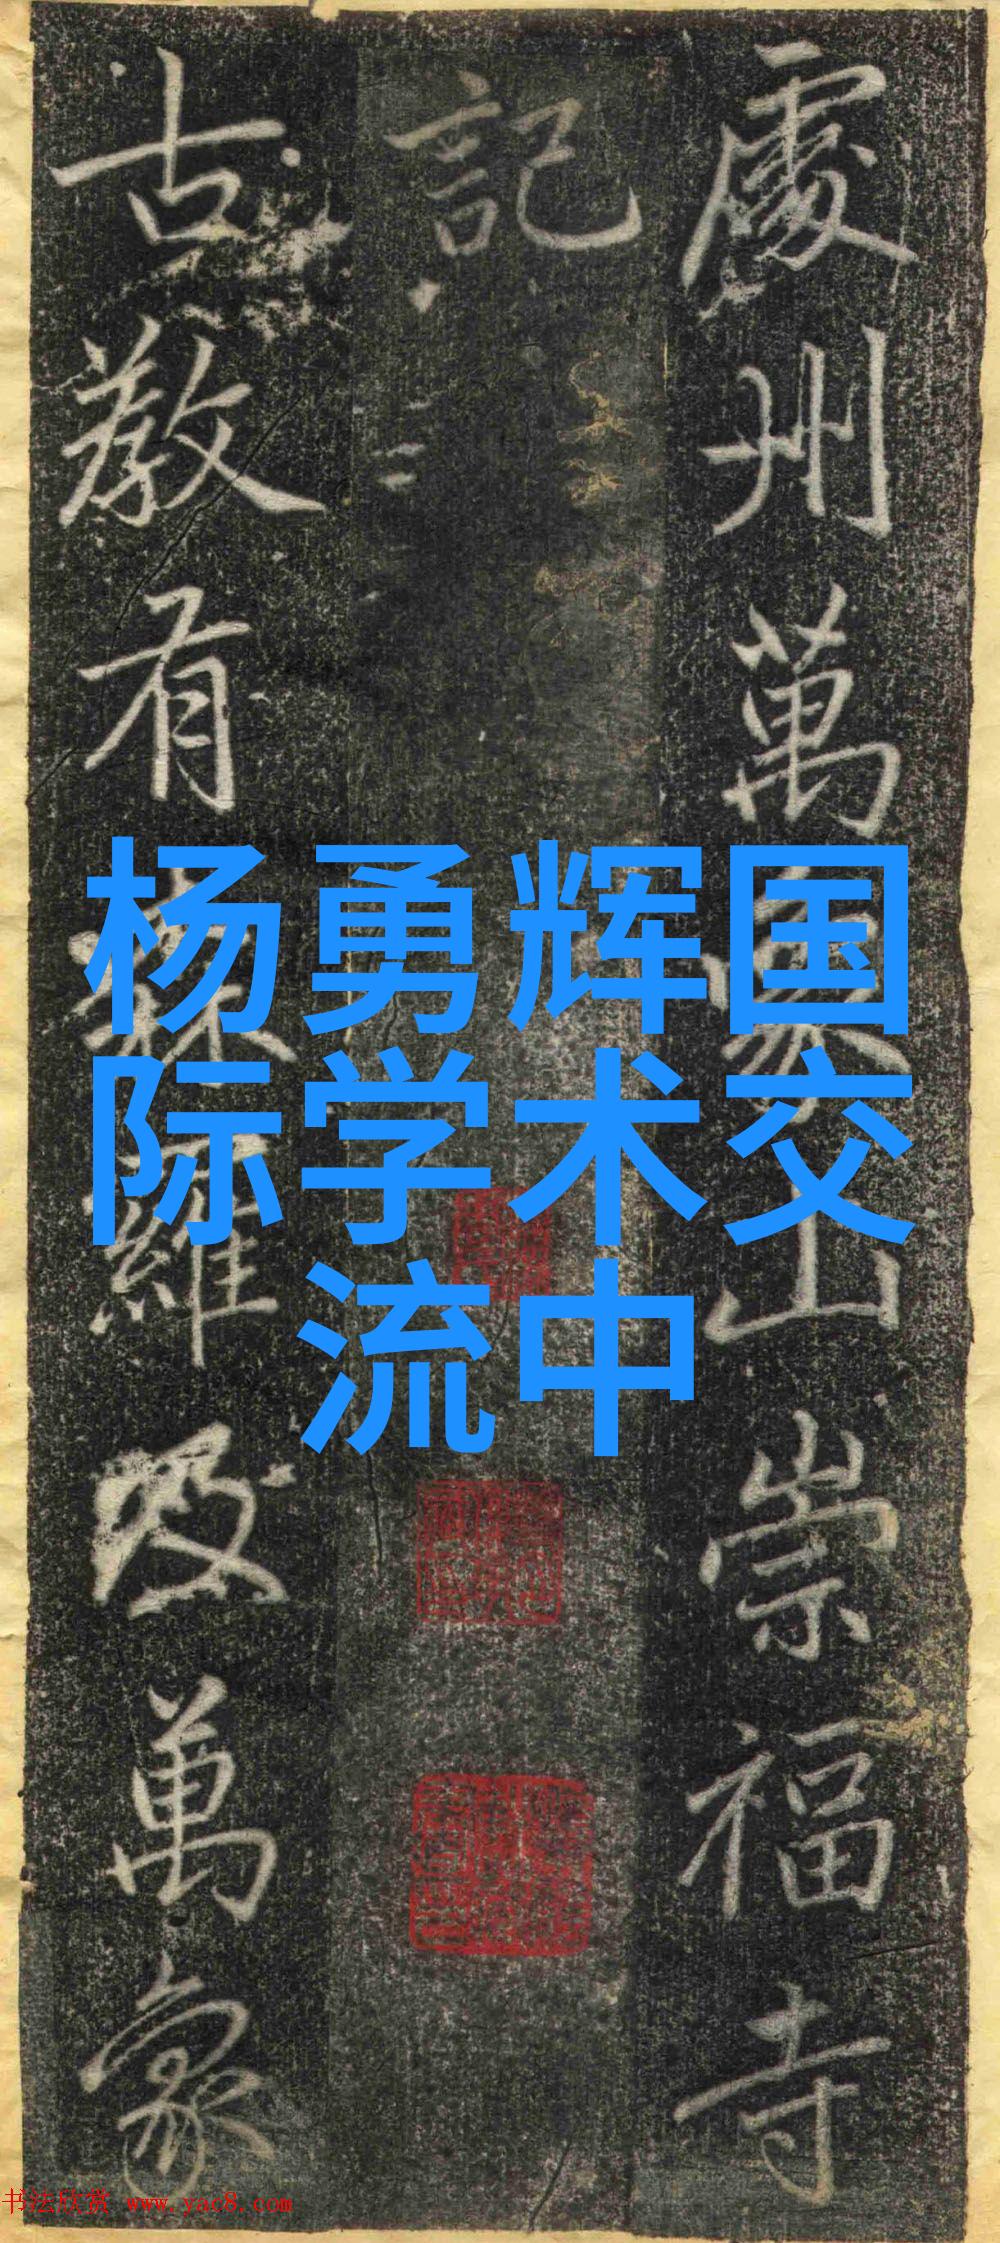 處州萬象山崇福寺
記
古教有森羅及萬象
杨勇辉国
际学术交
流中
书法欣赏 www.yac8.com